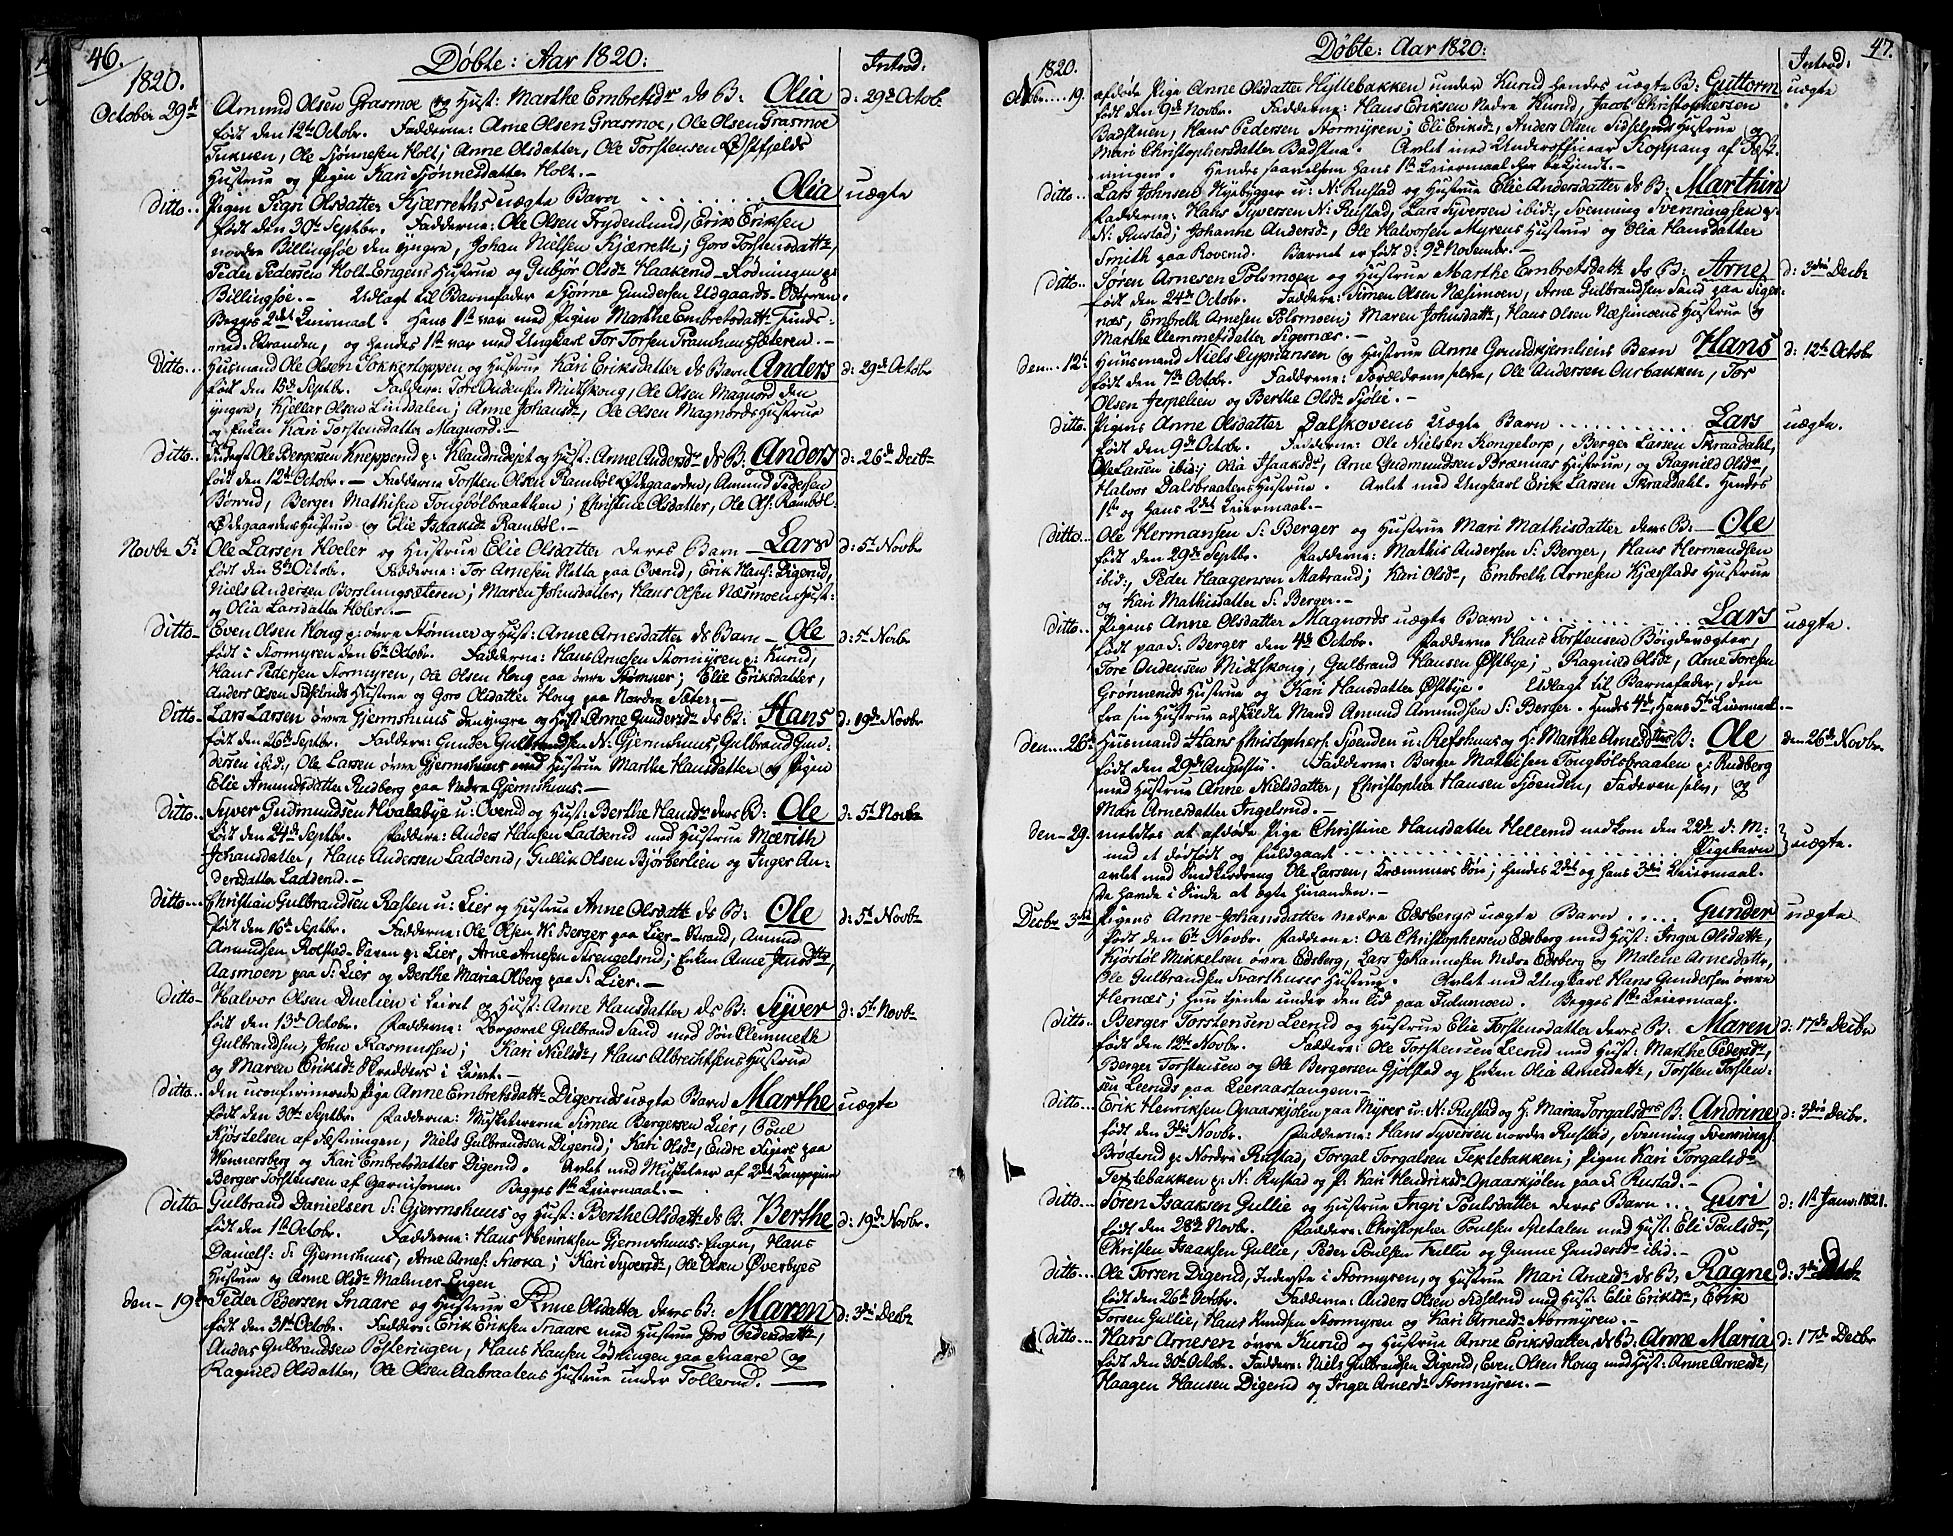 46.
Døbte: Aar 1820:
Introd:
1820.
October 29de Amund Olsen Grasmoe og Hust: Marthe Embretsdr ds B: Olia d: 29de Octobr
født den 12te Octobr. Fadderne: Arne Olsen Grasmoe, Ole Olsen Grasmoe
Ole Sjønnesen Holt; Anne Olsdatter, Ole Torstensen Østfjelds
Hustrue og Pigen Kari Sjønnesdatter Holt.-
Ditto.. Pigen Sigri Olsdatter Kjærreths uægte Barn ........ Olia uægte
født den 30te Septbr. Fadderne: Ole Olsen Frydenlund, Erik Eriksen
nordre Billingsøe den yngre, Johan Nielsen Kjærreth; Goro Torstensdattr,
Peder Pedersen Holt-Engens Hustrue og Gubjør Olsdr Haakerud-Rødningen p:
Billingsøe.- Udlagt til Barnefader Sjønne Gundersen Udgaards-
Begges 2det Leiermaal. Hans 1ste var med Pigen Marthe Embretsdattr Finds-
rud-Stranden, og hendes 1ste var med Ungkarl Tor Torsen
Ditto.. Husmand Ole Olsen Sokkertoppen og Hustrue Kari Eriksdatter ds Barn Anders d: 29de Octobr
født den 13de Septbr. Faddere: Tore Andersen Midtskong, Ole Olsen Magnord den
yngre, Kjellar Olsen Linddalen; Anne Johansdr, Ole Olsen Magnords Hustrue
og Enken Kari Torstensdatter Magnord.-
Ditto.. Ole Bergersen Kneppend p: og Hust: Anne Andersdr ds B. Anders d: 26de Decbr
født den 12te Octobr.- Fadderne Torsten Olsen Rambøl Ødegaarden, Amund Pedersen
Børrud, Berger Mathisen Tongbølbraathen; Christine Olsdatter, Ole Ols: Rambøl-
Ødegaardens Hustrue og Elie Isaaksdr Rambøl.-
Novbr 5: Ole Larsen Hoeler og Hustrue Elie Olsdatter deres Barn - Lars d: 5te Novbr
født den 8de Octobr. Fadderne: Tor Arnesen Netta paa Overud, Erik Hans: Digerud,
Niels Andersen Borslungsæteren; Maren Johnsdatter, Hans Olsen Næsmoens Hust:
og Olia Larsdatter Holer.-
Ditto- Even Olsen Houg p: øvre Stømner og Hust: Anne Arnesdatter ds Barn - Ole d: 5te Novbr
født i Stormyren den 6te Octobr. Fadderne: Hans Arnesen Stormyren p: Kurud,
Hans Pedersen Stormyren, Ole Olsen Houg paa øvre Stømner; Elie Eriksdatter,
Anders Olsen Sidselruds Hustrue og Goro Olsdatter Houg paa Nordre Sæter.-
Ditto- Lars Larsen øvre Gjermshuus den yngre og Hust: Anne Gundersdr ds B: Hans d: 19de Novbr
født den 26de Septbr. Faddere: Gunder Gulbrandsen N: Gjermshuus, Gulbrand Gun-
dersen ibid:, Ole Larsen øvre Gjermshuus med Hustrue Marthe Hansdatter og Pigen
Elie Amundsdatter Rudberg paa Nedre Gjermshuus.-
Ditto.. Syver Gudmundsen Hvalebye u: Overud og Hust: Berthe Hansdr deres B: Ole d: 5te Novbr
født den 24de Septbr. Faddere: Anders Hansen Ladderud med Hustrue Mærith
Johansdatter, Hans Andersen Ladderud, Gullik Olsen Bjørberlien og Inger An-
dersdatter Ladderud.-
Ditto... Christian Gulbrandsen Rasten u: Lier og Hustrue Anne Olsdattr ds B: Ole d: 5te Novbr
født den 16de Septbr. Fadderne: Ole Olsen W. Berger paa Lier-Strand, Amund
Amundsen Rolstad-Eieren p: Lier, Arne Arnesen Strengelsrud; Enken Anne Jensdttr
Aasmoen paa S: Lier og Berthe Maria Olberg paa S: Lier.-
Ditto- Halvor Olsen Duelien i Leiret og Hust: Anne Hansdatter ds B: Syver d: 5te Novbr
født den 13de Octobr. Fadderne: Corporal Gulbrand Sand med Søn Clemmeth
Gulbrandsen, John Rasmussen; Kari Nielsdr, Hans Albrechtsens Hustrue
og Maren Eriksdr Skredders i Leiret.-
Ditto- den uconfirmerede Pige Anne Embretsdattr Digeruds uægte Barn Marthe uægte
født den 30te Septbr. Fadderne: Musketererne Simen Bergersen Lier, Poul
Kjøstelsen af Fæstningen, Niels Gulbrandsen Digerud; Kari Olsdr, Endre Sigers paa
Wennersberg og Kari Embretsdatter Digerud. Avlet med Musketeer af 2det Compagnie
Berger Torstensen af Garnisonen. Begges 1ste Leiermaal.-
Ditto- Gulbrand Danielsen S: Gjermshuus og Hust: Berthe Olsdattr ds B: Berthe d: 19de Novbr.
født den 1ste Octobr. Fadderne: Hans Henriksen Gjermshuus-Engen, Hans
Daniels: S: Gjermshuus, Arne Arnes: Snoka; Kari Syversdr, Ole Olsen Øverbyes
Hustrue og Anne Olsdr Malmer-Engen
den - 19de Peder Pedersen Snaare og Hustrue Anne Olsdatter deres B: Maren d: 3die Decbr
født den 31te Octobr. Faddere: Erik Eriksen Snaare med Hustrue Goro Pedersdattr,
Anders Gulbrandsen Posteringen, Hans Hansen Lødningen paa Snaare og
Ragnild Olsdatter, Ole Olsen Aabraatens Hustrue under Tollerud.-
47.
Døbte: Aar 1820:
Introd:
1820.
Novbr.... 19. afløste Pige Anne Olsdatter Hyttebakken under Kurud hendes uægte B: Guttorm uægte
født den 9de Novbr. Fadderne: Hans Eriksen Nedre Kurud, Jacob Christophersen
Badstuen, Hans Pedersen Stormyren; Eli Eriksdr, Anders Olsen Sidselruds Hustrue og
Mari Christophersdatter Badstua. Avlet med Underofficeer Koppang af Fæst-
ningen. Hendes saavelsom Hans 1ste Leiermaal bekjendt.-
Ditto... Lars Johnsen Nyebygger u: N: Rustad og Hustrue Elie Andersdatter ds B: Marthin
Fadderne: Hans Syversen N: Rustad, Lars Syversen ibid:, Svenning Svenningsen p:
N: Rustad; Johanne Andersdr, Ole Halvorsen Myrens Hustrue og Olia Hansdatter
Smith paa Roverud. Barnet er født d: 9de Novembr.-
Ditto... Søren Arnesen Polsmoen og Hustrue Marthe Embretsdattr ds B: Arne d: 3die Decbr
født den 24de Octobr. Faddere: Simen Olsen Næsimoen, Arne Gulbrandsen Sand paa Siger-
næs, Embreth Arnesen Polsmoen; Maren Johnsdattr, Hans Olsen Næsimoens Hustrue og
Marthe Clemmetsdatter Sigernæs.-
den... 12te Huusmand Niels Cypriansen og Hustrue Anne Grundkjernliens Barn Hans d: 12te Octobr
født den 7de Octobr. Fadderne: Forældrerne selve, Ole Andersen Aurbakken, Tor
Olsen Jerpelien og Berthe Olsdr Sjølie.-
Ditto- Pigens Anne Olsdatter Dalskovens Uægte Barn ........... Lars uægte.
født den 9de Octobr. Fadderne: Ole Nielsen Kongetorp, Berger Larsen Skraadahl,
Ole Larsen ibid:; Olia Isaaksdr, Arne Gudmundsen Brænnas Hustrue, og Ragnild Olsdr,
Halvor Dalsbraatens Hustrue. Avlet med Ungkarl Erik Larsen Skraadahl. Hendes
1ste og Hans 2det Leiermaal.-
Ditto... Ole Hermansen S: Berger og Hustrue Mari Mathisdatter deres B:- Ole
født den 29de Septbr. Fadderne: Mathis Andersen S: Berger, Hans Hermandsen
ibid:, Peder Haagensen Matrand; Kari Olsdr, Embreth Arnesen Kjærstads Hustrue
og Kari Mathisdatter S: Berger.-
Ditto... Pigens Anne Olsdatter Magnords uægte Barn ............ Lars uægte.
født paa S: Berger den 4de Octobr. Fadderne Hans Torstensen Bøigdevægter,
Tore Andersen Midtskong, Gulbrand Hansen Østbye; Ragnild Olsdr, Arne Toresen
Grønneruds Hustrue og Kari Hansdatter Østbye. Udlagt til Barnefader, den
fra sin Hustrue adskildte Mand Amund Amundsen S: Berger. Hendes 4de, Hans 5te Leiermaal.-
den... 26de Husmand Hans Christophers: Sjøenden u: Refshuus og H: Marthe Arnesdtters B: Ole den 26de Novbr.
født den 29de Augusti. Fadderne: Berger Mathisen Tongbølsbraaten p: Rudberg
med Hustrue Anne Nielsdatter, Christopher Hansen Sjøenden, Faderen selv, og
Mari Arnesdatter Ingelsrud.-
den - 29. meldtes at afløste Pige Christine Hansdatter Hellerud nedkom den 22de d: M:
med et dødfødt og fuldgaaet ............ Pigebarn uægte.
avlet med Ole Larsen, Kræmmers Søn; Hendes 2det og hans 3die Leiermaal.
De havde i Sinde at egte hinanden.-
Decbr 3die Pigens Anne Johansdatter nedre Edsbergs uægte Barn ..... Gunder uægte
født den 6te Novbr. Fadderne: Ole Christophersen Edsberg med Hust: Inger Olsdattr,
Kjøstøl Mikkelsen øvre Edsberg, Lars Johannesen Nedre Edsberg og Malene Arnesdattr,
Ole Gulbrandsen Svarthuses Hustrue. Avlet med Ungkarl Hans Gundersen øvre
Hernæs; Hun tjente under den tid paa Tulumoen. Begges 1ste Leiermaal.
Ditto... Berger Torstensen Leerud og Hustrue Elie Torstensdatter deres B. Maren d: 17de Decbr
født den 12te Novbr. Faddere: Ole Torstensen Leerud med Hust: Marthe Pedersdr,
Berger Torstensen og Ole Bergersen Gjølstad og Enken Olia Arnesdattr, Torsten Torsten-
sen Leeruds paa Leeraastangen.-
Ditto.. Erik Henriksen Opaaskjølen paa Myrer u: N: Rustad og H: Maria Torgalsdrs B. Andrine d: 3die Decbr.
født den 3die Novbr. Fadderne: Hans Syversen nordre Rustad, Svenning Svennings:
Brøderud p: Nordre Rustad, Torgal Torgalsen Textebakken; Pigen Kari Torgalsdr
Textebakken p: N. Rustad og P: Kari Hendriksdr Opaaskjølen paa S. Rustad.-
Ditto... Søren Isaaksen Gullie og Hustrue Ingri Poulsdatter deres Barn .. Guri d: 1ste Janv: 1821.
født den 28de Novbr. Faddere: Christopher Poulsen Spetalen med Hust: Eli Poulsdr,
Christen Isaaksen Gullie, Peder Poulsen Fillie og Gunne Gundersdr ibid:-
Ditto... Ole Torsen Digerud, Inderste i Stormyren, og Hustrue Mari Arnesdr ds B; Ragne, d: 3die
født den 26de Octobr. Fadderne: Anders Olsen Sidselrud med Hust: Elie Eriksdr, Erik
Torsen Gullie, Hans Knudsen Stormyren og Kari Arnesdr Stormyren.-
Ditto... Hans Arnesen øvre Kurud og Hustrue Anne Eriksdatter ds B: Anne Maria d: 17de Decbr
født den 30te Octobr. Faddere: Niels Gulbrandsen Digerud, Even Olsen Houg med Hust: Anne Arnesdr,
Haagen Hansen Digerud og Inger Arnesdr Stormyren.-